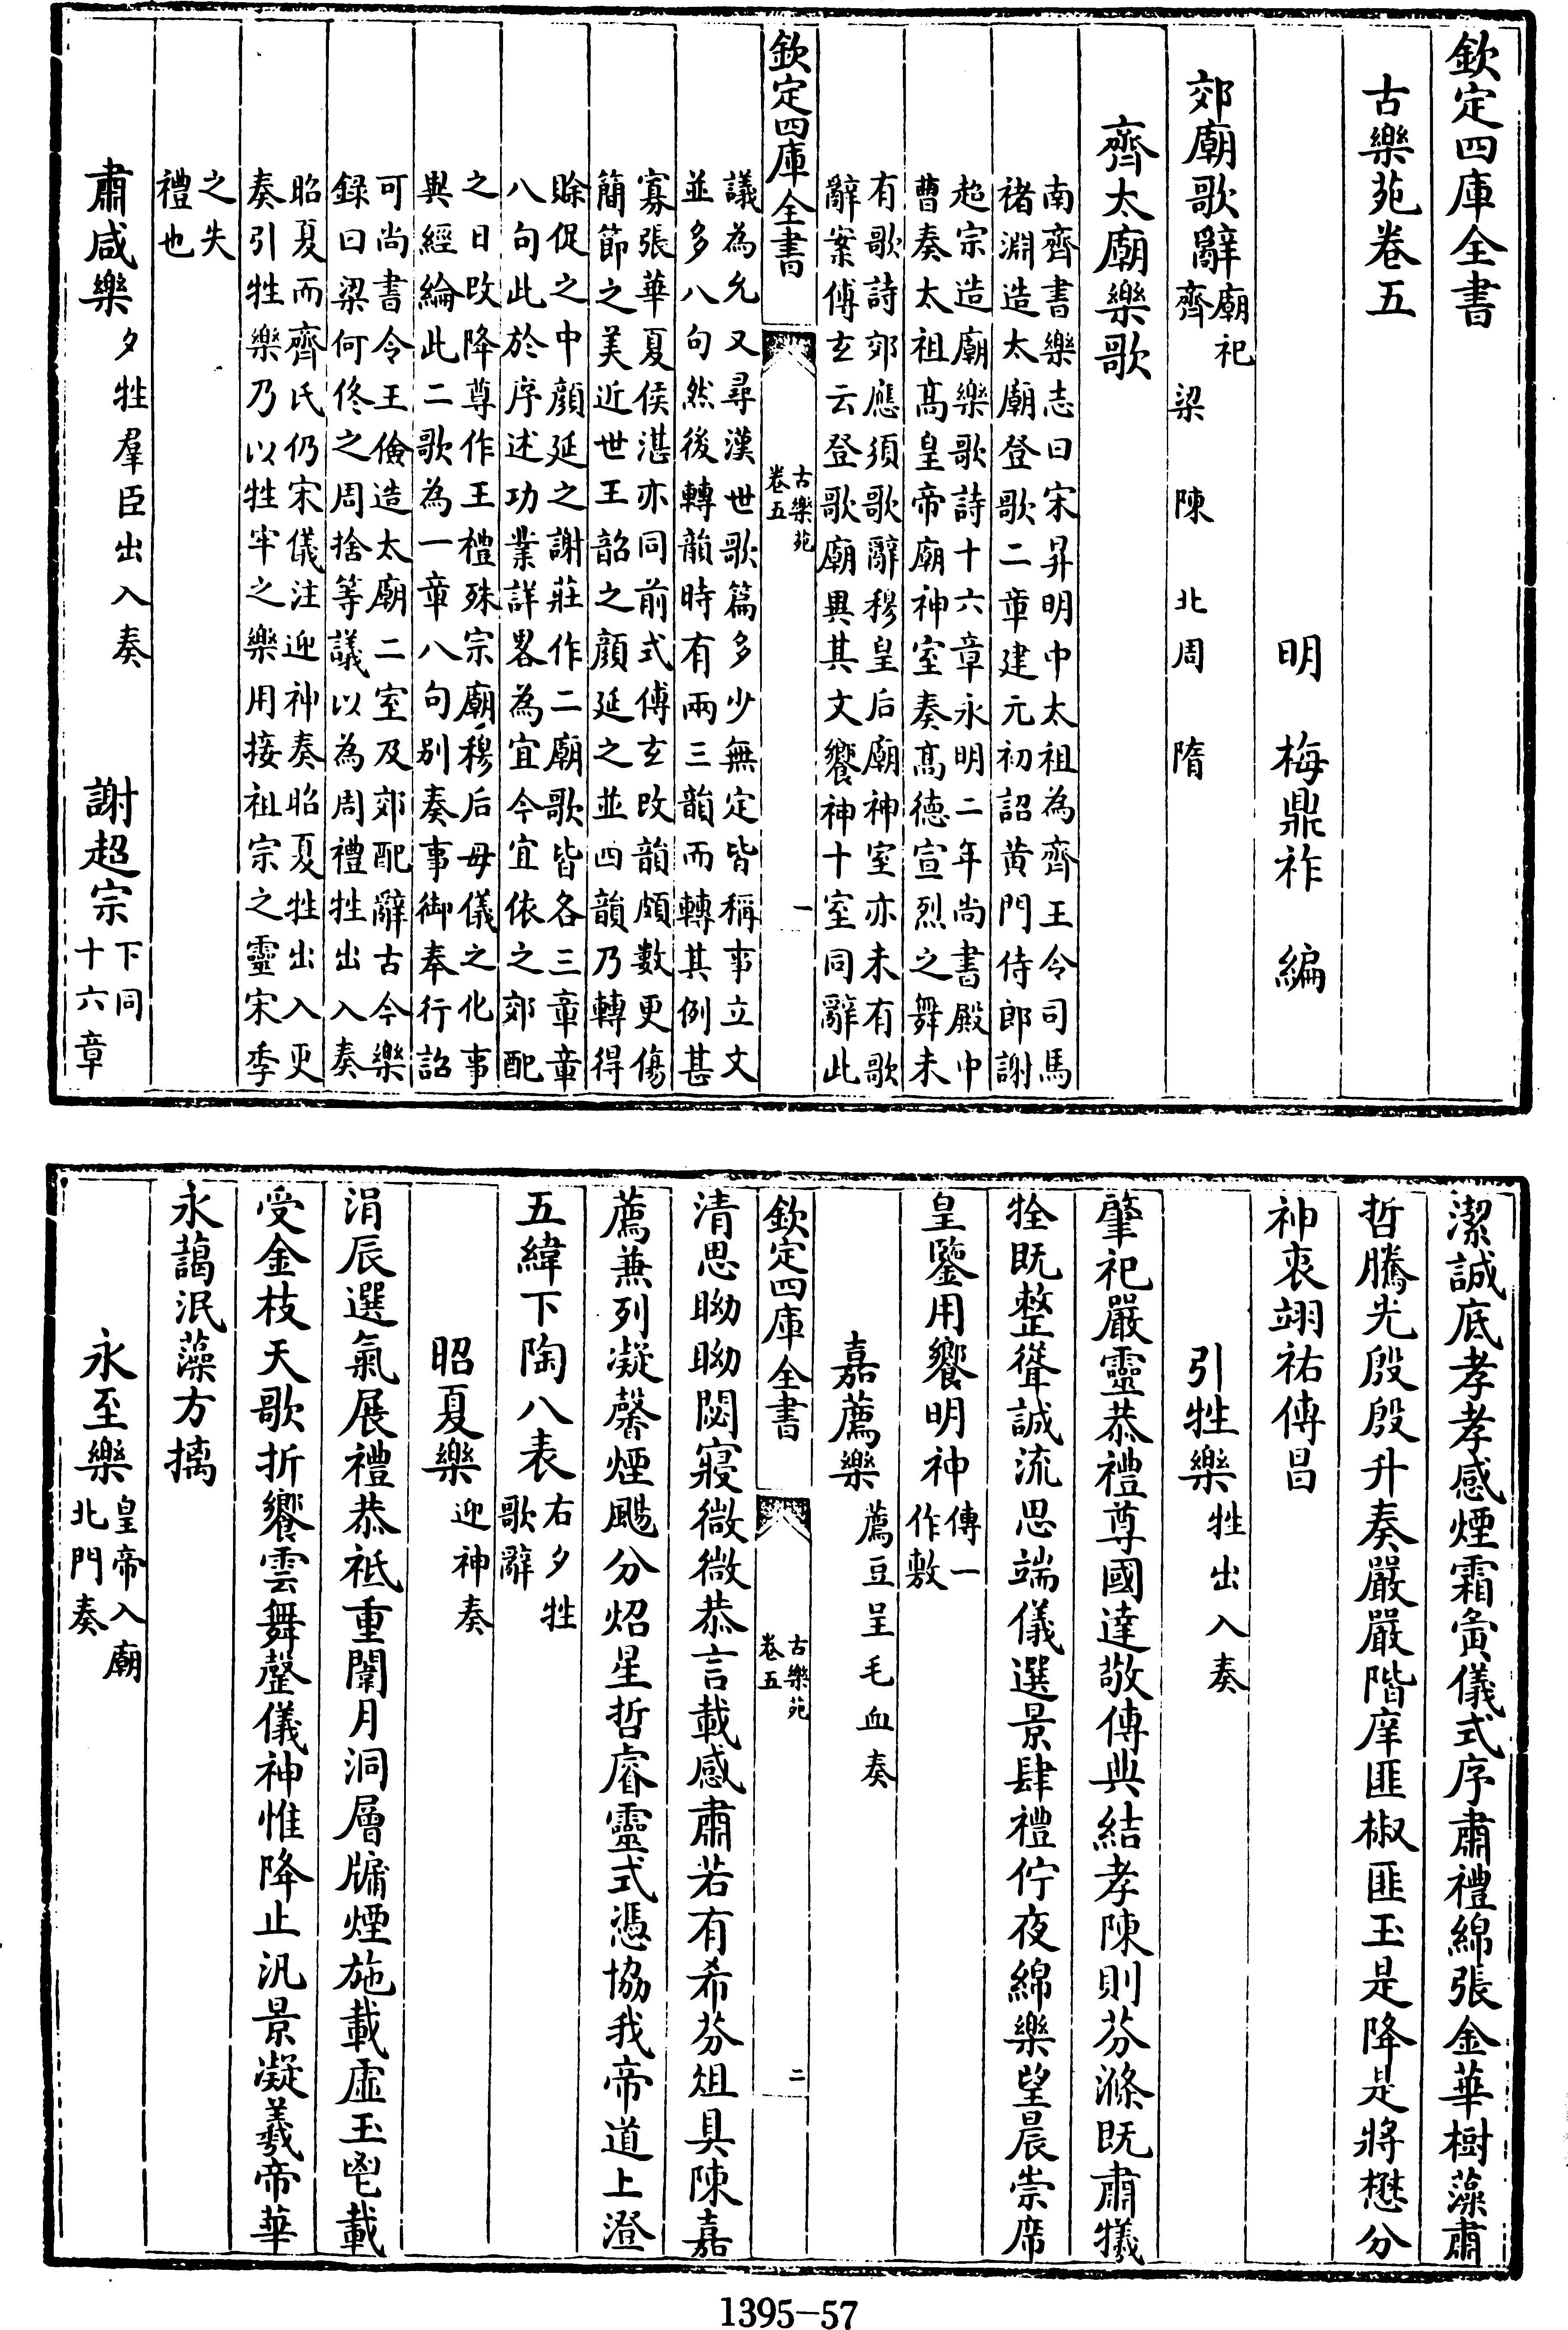 欽定四庫全書
古樂苑卷五
明　梅鼎祚　編
郊廟歌辭廟祀
齊　梁　陳　北周　隋
齊太廟樂歌
南齊書樂志曰宋昇明中太祖為齊王令司馬
褚淵造太廟登歌二章建元初詔黄門侍郎謝
超宗造廟樂歌詩十六章永明二年尚書殿中
曹奏太祖髙皇帝廟神室奏髙德宣烈之舞未
有歌詩郊應須歌辭穆皇后廟神室亦未有歌
辭案傅玄云登歌廟異其文饗神十室同辭此
欽定四庫全書
古樂苑
卷五
一
議為允又尋漢世歌篇多少無定皆稱事立文
並多八句然後轉韻時有兩三韻而轉其例甚
寡張華夏侯湛亦同前式傅玄改韻頗數更傷
簡節之美近世王韶之顔延之並四韻乃轉得
賒促之中顔延之謝莊作二廟歌皆各三章章
八句此於序述功業詳畧為宜今宜依之郊配
之日改降尊作王禮殊宗廟穆后母儀之化事
與經綸此二歌為一章八句别奏事御奉行詔
可尚書令王儉造太廟二室及郊配辭古今樂
録曰梁何佟之周捨等議以為周禮牲出入奏
昭夏而齊氏仍宋儀注迎神奏昭夏牲出入更
奏引牲樂乃以牲牢之樂用接祖宗之靈宋季
之失
禮也
肅咸樂夕牲羣臣出入奏　謝超宗下同
十六章
潔誠底孝孝感煙霜夤儀式序肅禮綿張金華樹藻肅
哲騰光殷殷升奏嚴嚴階庠匪椒匪玉是降是將懋分
神衷翊祐傳昌
引牲樂牲出入奏
肇祀嚴靈恭禮尊國達敬傳典結孝陳則芬滌既肅犧
牷既整聳誠流思端儀選景肆禮佇夜綿樂望晨崇席
皇鑒用饗明神傳一
作敷
嘉薦樂薦豆呈毛血奏
欽定四庫全書
古樂苑
卷五
二
清思㫘㫘閟寢微微恭言載感肅若有希芬俎具陳嘉
薦兼列凝馨煙颺分炤星哲睿靈式憑協我帝道上澄
五緯下陶八表右夕牲
歌辭
昭夏樂迎神奏
涓辰選氣展禮恭祗重闈月洞層牖煙施載虛玉鬯載
受金枝天歌折饗雲舞罄儀神惟降止汎景凝羲帝華
永藹泯藻方摛
永至樂皇帝入廟
北門奏
1395-57